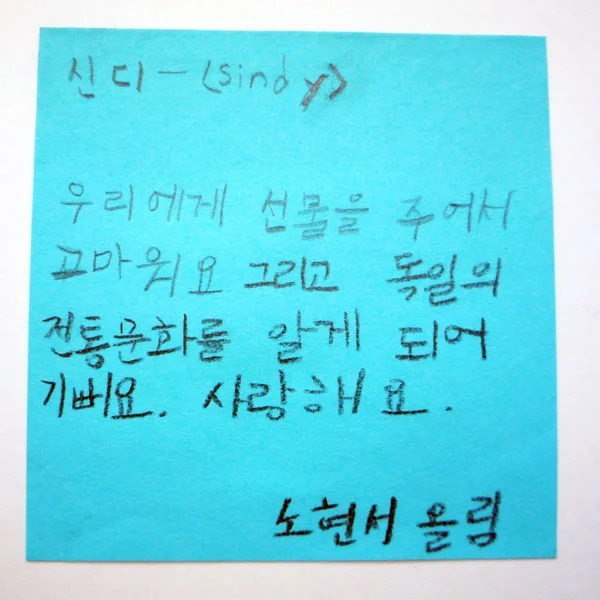 신디-<sindy>
우리에게 선물을 주어서
고마워요 그리고 독일의
전통문화를 알게 되어
기뻐요. 사랑해요.
노현서 올림